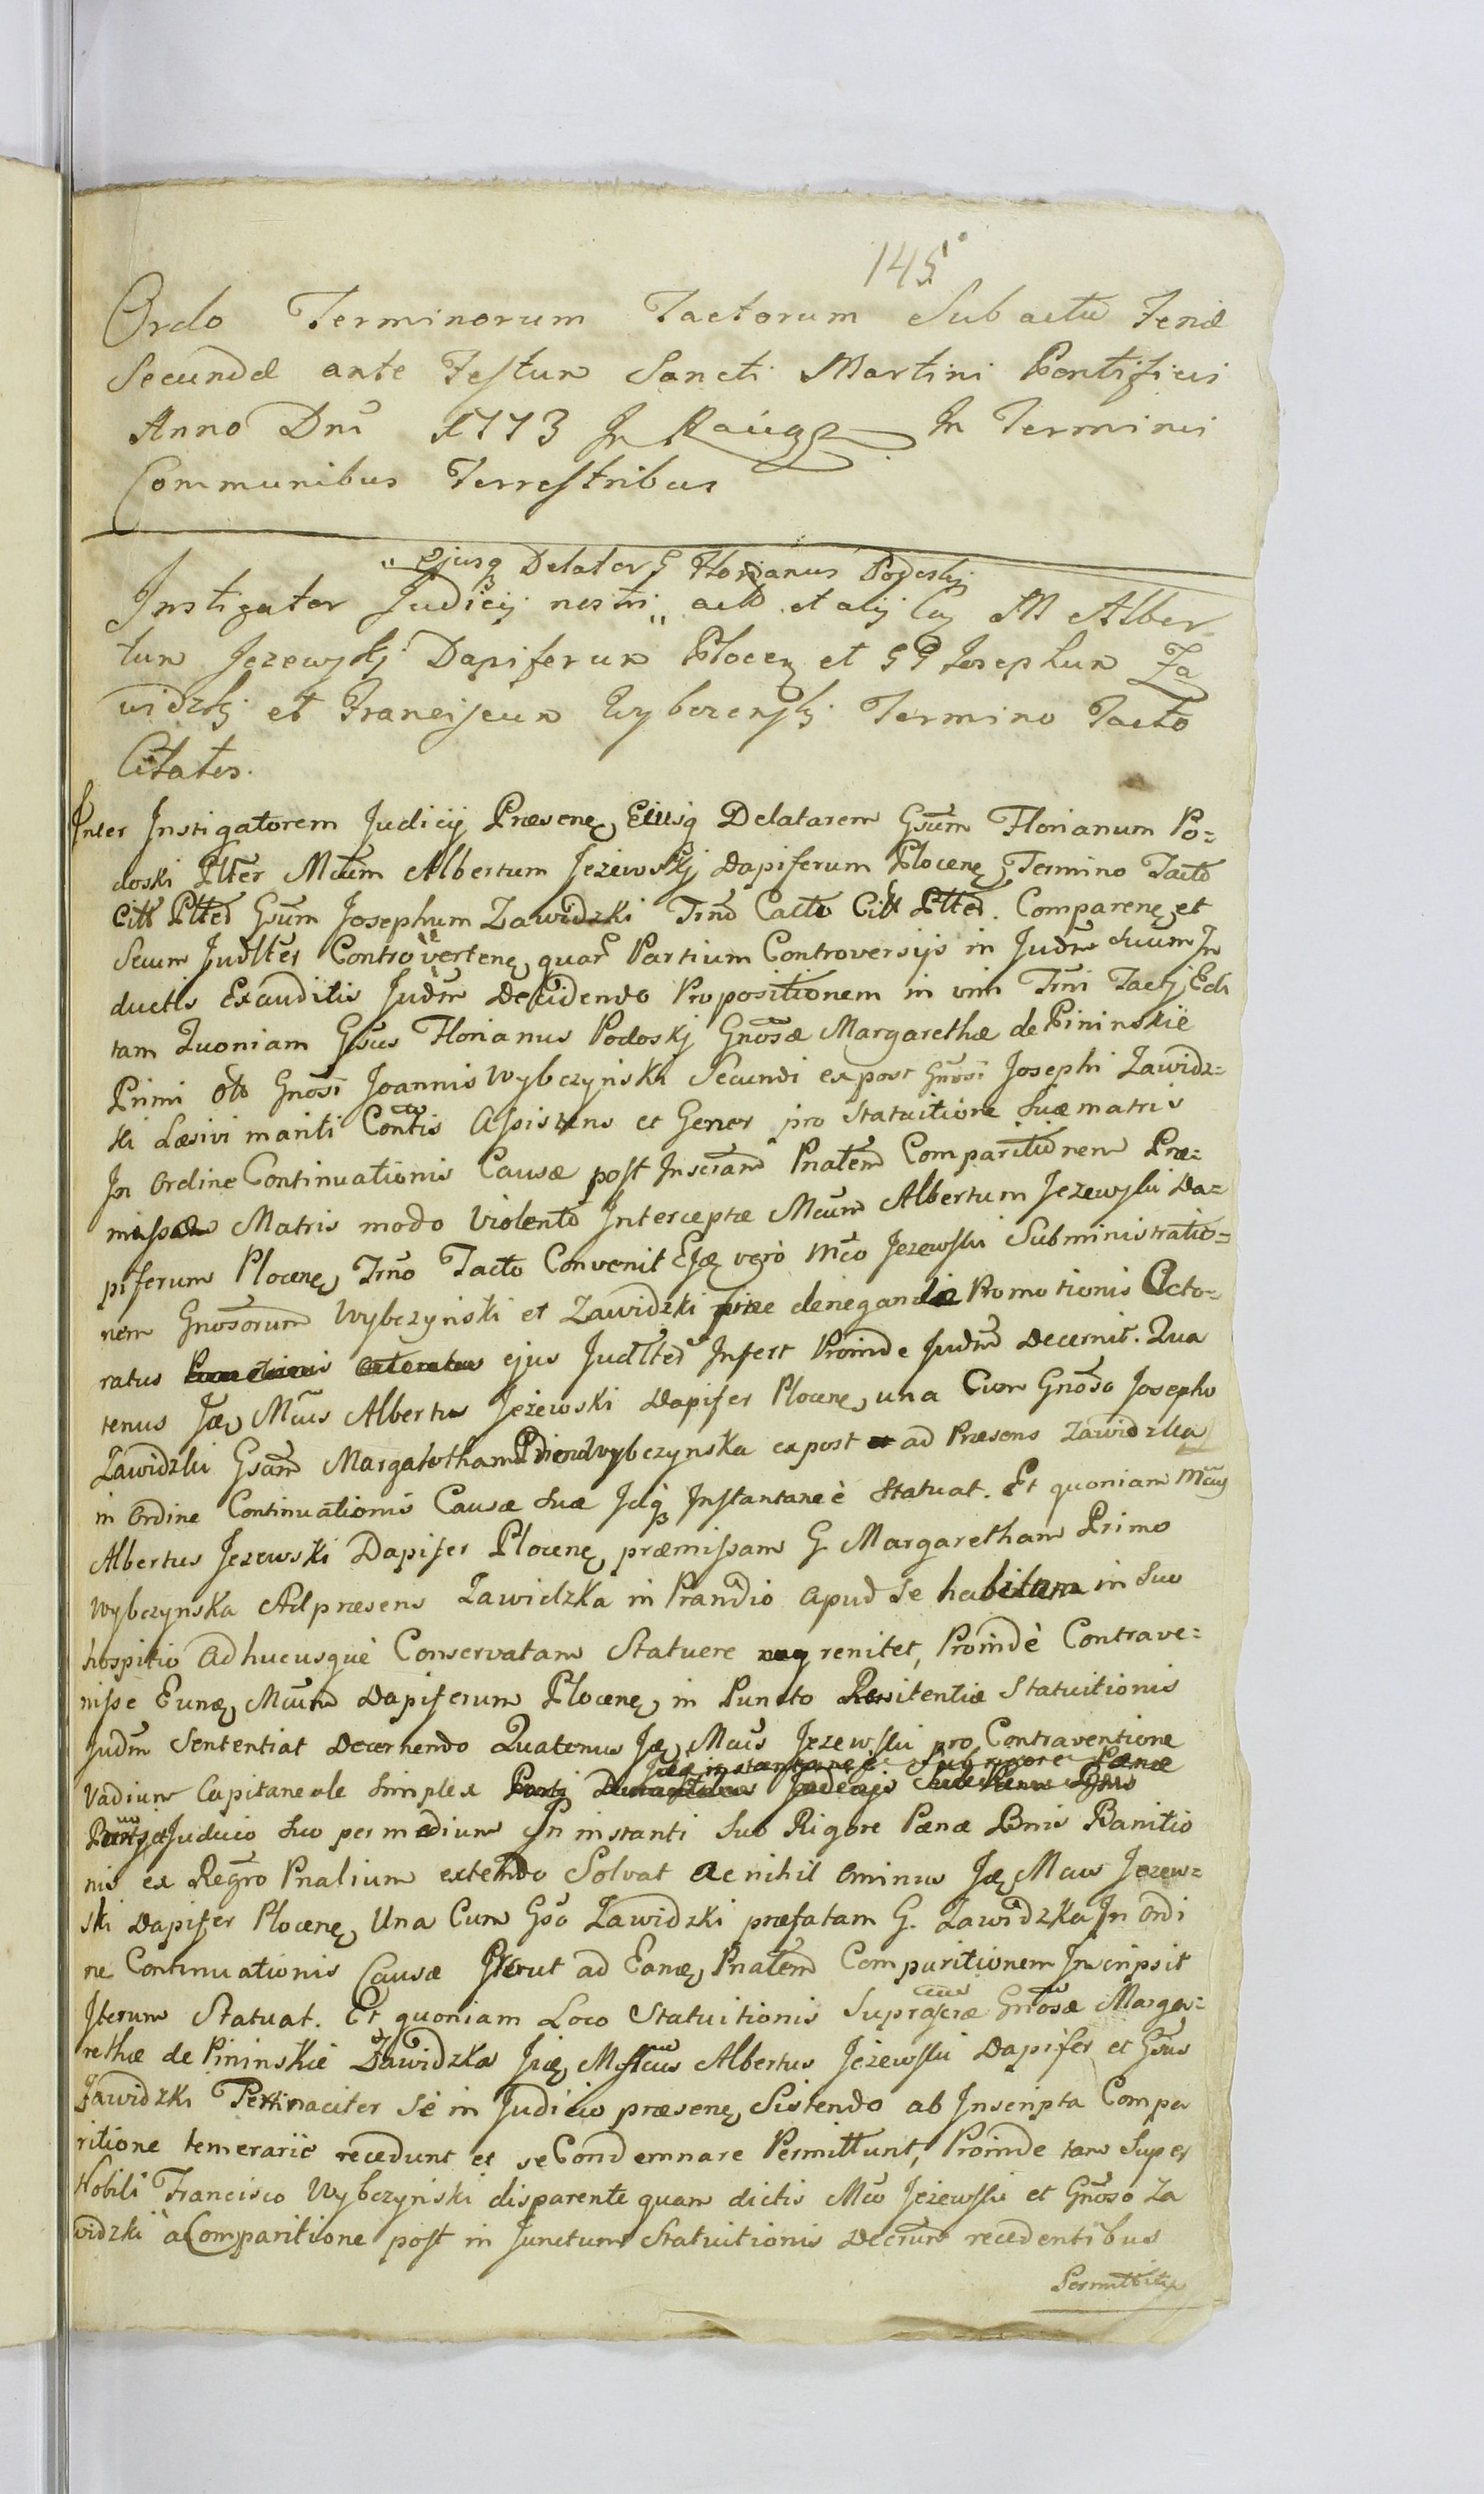 145
Ordo Terminorum Tactorum Sub actu Feriæ
Secundæ ante Festum Sancti Martini Pontificis
Anno Dni 1773 In Raciąz In Terminis
Communibus Terrestribus
ejusq Delator G Florianus Podoskj
Instigator Judicij nostri act et alij Cą M Alber
tum Jezewskj Dapiferum Plocen et GG Josephum Za
widzkj et Franciscum Wybczenskj Termino Tacto
Citatos.
Inter Instigatorem Judicij Præsenę Eiusq Delatarem Gsum Florianum Po=
doski Ptter Mcum Albertum Jeżewskj Dapiferum Plocenę Termino Tacto
Citt Ptted Gsum Josephum Zawidzki Trno Tacto Citt Ptted. Comparenę et
Secum Judlter Controvertenę quar Partium Controversijs in Judm suum In
ductis Exauditis Judm Decidendo Propositionem in vim Trni Tactj Edi
tam Quoniam Gsus Florianus Podoskj Gnosæ Margarethæ de Pininskie
Primi oto Gnosi Joannis Wybczynski Secundi expost Gnosi Josephi Zawidz=
ki Læsivi mariti Contis Assistens et Gener pro Statuitione Suæ matris
In Ordine Continuationis Causæ post Inscram Pnatem Comparitionem Præ=
missæ Matris modo Violento Interceptæ Mcum Albertum Jezewski Da=
piferum Plocenę Trno Tacto Convenit Ejæ verò Mco Jezewski Subministratio=
nem Gnosorum Wybczyński et Zawidzki denegandæ Promotionis Octo=
ratus ejus Judlted Infert Proinde Judm Decernit. Qua
tenus Jæ Mcus Albertus Jeżewski Dapifer Plocenę una Cum Gnoso Josepho
Zawidzki Gsam Margaretham Wybczynska expost ad Præsens Zawidzka
in Ordine Continuationis Causæ suæ Idq Instantanee Statuat. Et quoniam Mcus
Albertus Jezewski Dapifer Plocenę præmissam G Margaretham Primo
Wybczynska Ad præsens Zawidzka in Prandio apud Se habitam in Suo
hospitio Adhucusque Conservatam Statuere renitet, Proindè Contrave=
nisse Eunæ Mcum Dapiferum Plocenę in Puncto Renitentiæ Statuitionis
Judm Sententiat Decernendo Quatenus Jæ Mcus Jezewski pro Contraventione
instantanee Sub rigore Pænæ
Vadium Capitaneale Simplex
Judicio Suo per medium In instanti Sub Rigore Pænæ Bnis Banitio
nis ex Regro Pnalium extendo Solvat ac nihil ominus Jæ Mcus Jezew=
ski Dapifer Plocenę Una Cum Gso Zawidzki præfatam G. Zawidzka In Ordi
ne Continuationis Causæ Prout ad Eamæ Pnatem Comparitionem Inscripsit
Iterum Statuat. Et quoniam Loco Statuitionis Suprascræ Gnosæ Marga=
rethæ de Pininskie Zawidzka Jæ Mcus Albertus Jeżewski Dapifer et Gsus
Zawidzki Pertinaciter Se in Judicio præsenę Sistendo ab Inscripta Compa
ritione temerariè recedunt et se Condemnare Permittunt, Proinde tam Super
Nobili Francisco Wybczyński disparente quam dictis Mco Jeżewski et Gnoso Za
widzki à Comparitione post in Junctum Statuitionis Decrum recedentibus
Permittitq